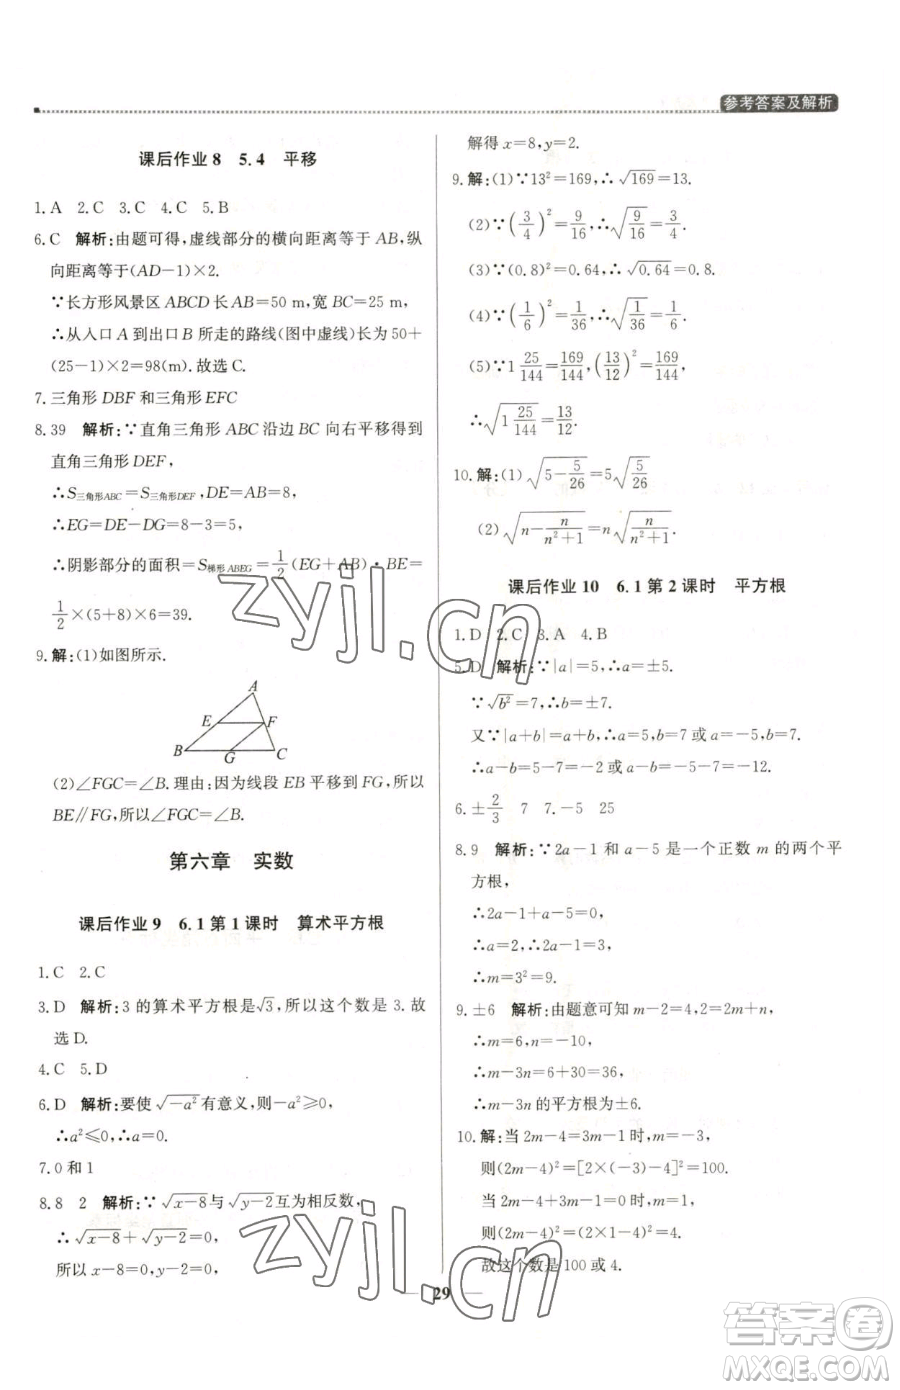 参考答案及解析
课后作业8 5.4 平移
1.A 2.C 3.C 4.C 5.B
6.C 解析:由题可得,虚线部分的横向距离等于AB,纵
向距离等于(AD-1)×2.
∵长方形风景区ABCD中,AB=50 m,宽BC=25 m,
∴从入口A到出口B所走的路线(图中虚线)长为50+
(25-1)×2=98(m).故选C.
7.三角形DBF和三角形EFC
8.39 解析:∵直角三角形ABC沿边BC向右平移得到
直角三角形DEF,
∴S三角形ABC=S三角形DEF,DE=AB=8,
∴EG=DE-DG=8-3=5,
∴阴影部分的面积=S梯形ABEG=1/2(EG+AB)·BE=
1/2×(5+8)×6=39.
9.解:(1)如图所示.
A
E F
B G C
(2)∠FGC=∠B.理由:因为线段EB平移到FG,所以
BE∥FG,所以∠FGC=∠B.
第六章 实数
课后作业9 6.1第1课时 算术平方根
1.C 2.C
3.D 解析:3的算术平方根是√3,所以这个数是3.故
选D.
4.C 5.D
6.D 解析:要使√(-a²)有意义,则-a²≥0,
∴a²≤0,∴a=0.
7.0和1
8.8 2 解析:∵√(x-8)与√(y-2)互为相反数,
∴√(x-8)+√(y-2)=0,
所以x-8=0,y-2=0,
解得x=8,y=2.
9.解:(1)∵13²=169,∴√169=13.
(2)∵(3/4)²=9/16,∴√(9/16)=3/4.
(3)∵(0.8)²=0.64,∴√0.64=0.8.
(4)∵(1/6)²=1/36,∴√(1/36)=1/6.
(5)∵1 25/144=169/144,(13/12)²=169/144,
∴√(1 25/144)=13/12.
10.解:(1)√(5-5/26)=5√(5/26)
(2)√(n-n/(n²+1))=n√(n/(n²+1)).
课后作业10 6.1第2课时 平方根
1.D 2.C 3.A 4.B
5.D 解析:∵|a|=5,∴a=±5.
∵√b²=7,∴b=±7.
又∵|a+b|=a+b,∴a=5,b=7或a=-5,b=7.
∴a-b=5-7=-2或a-b=-5-7=-12.
6.±2/3 7 7.-5 25
8.9 解析:∵2a-1和a-5是一个正数m的两个平
方根,
∴2a-1+a-5=0,
∴a=2,∴2a-1=3,
∴m=3²=9.
9.±6 解析:由题意可知m-2=4,2=2m+n,
∴m=6,n=-10,
∴m-3n=6+30=36,
∴m-3n的平方根为±6.
10.解:当2m-4=3m-1时,m=-3,
则(2m-4)²=[2×(-3)-4]²=100.
当2m-4+3m-1=0时,m=1,
则(2m-4)²=(2×1-4)²=4.
故这个数是100或4.
29
zyjl.cn
zyjl.cn
答案圈
MXQE.COM